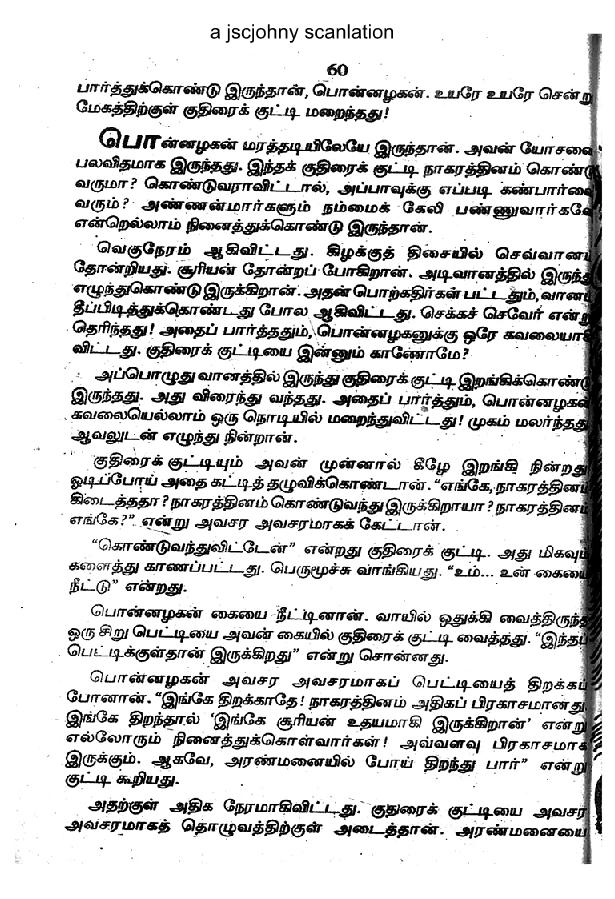 a jscjohny scanlation
60
பார்த்துக்கொண்டு இருந்தான், பொன்னழகன். உயரே உயரே சென்று
மேகத்திற்குள் குதிரைக் குட்டி மறைந்தது!
பொன்னழகன் மரத்தடியிலேயே இருந்தான். அவன் யோசனை
பலவிதமாக இருந்தது. இந்தக் குதிரைக் குட்டி நாகரத்தினம் கொண்டு
வருமா? கொண்டுவராவிட்டால், அப்பாவுக்கு எப்படி கண்பார்வை
வரும்? அண்ணன்மார்களும் நம்மைக் கேலி பண்ணுவார்களே
என்றெல்லாம் நினைத்துக்கொண்டு இருந்தான்.
வெகுநேரம் ஆகிவிட்டது. கிழக்குத் திசையில் செவ்வானம்
தோன்றியது. சூரியன் தோன்றப் போகிறான். அடிவானத்தில் இருந்து
எழுந்துகொண்டு இருக்கிறான். அதன் பொற்கதிர்கள் பட்டதும், வானம்
தீப்பிடித்துக்கொண்டது போல ஆகிவிட்டது. செக்கச் செவேர் என்று
தெரிந்தது! அதைப் பார்த்ததும், பொன்னழகனுக்கு ஒரே கவலையாகி
விட்டது. குதிரைக் குட்டியை இன்னும் காணோமே?
அப்பொழுது வானத்தில் இருந்து குதிரைக் குட்டி இறங்கிக்கொண்டு
இருந்தது. அது விரைந்து வந்தது. அதைப் பார்த்தும், பொன்னழகன்
கவலையெல்லாம் ஒரு நொடியில் மறைந்துவிட்டது! முகம் மலர்ந்தது
ஆவலுடன் எழுந்து நின்றான்.
குதிரைக் குட்டியும் அவன் முன்னால் கீழே இறங்கி நின்றது
ஓடிப்போய் அதை கட்டித் தழுவிக்கொண்டான். “எங்கே, நாகரத்தினம்
கிடைத்ததா? நாகரத்தினம் கொண்டுவந்து இருக்கிறாயா? நாகரத்தினம்
எங்கே?” என்று அவசர அவசரமாகக் கேட்டான்.
“கொண்டுவந்துவிட்டேன்” என்றது குதிரைக் குட்டி. அது மிகவும்
களைத்து காணப்பட்டது. பெருமூச்சு வாங்கியது. “உம்... உன் கையை
நீட்டு” என்றது.
பொன்னழகன் கையை நீட்டினான். வாயில் ஒதுக்கி வைத்திருந்த
ஒரு சிறு பெட்டியை அவன் கையில் குதிரைக் குட்டி வைத்தது. “இந்தப்
பெட்டிக்குள்தான் இருக்கிறது” என்று சொன்னது.
பொன்னழகன் அவசர அவசரமாகப் பெட்டியைத் திறக்கப்
போனான். “இங்கே திறக்காதே! நாகரத்தினம் அதிகப் பிரகாசமானது.
இங்கே திறந்தால் ‘இங்கே சூரியன் உதயமாகி இருக்கிறான்’ என்று
எல்லோரும் நினைத்துக்கொள்வார்கள்! அவ்வளவு பிரகாசமாக
இருக்கும். ஆகவே, அரண்மனையில் போய் திறந்து பார்” என்று
குட்டி கூறியது.
அதற்குள் அதிக நேரமாகிவிட்டது. குதுரைக் குட்டியை அவசர
அவசரமாகத் தொழுவத்திற்குள் அடைத்தான். அரண்மனையை